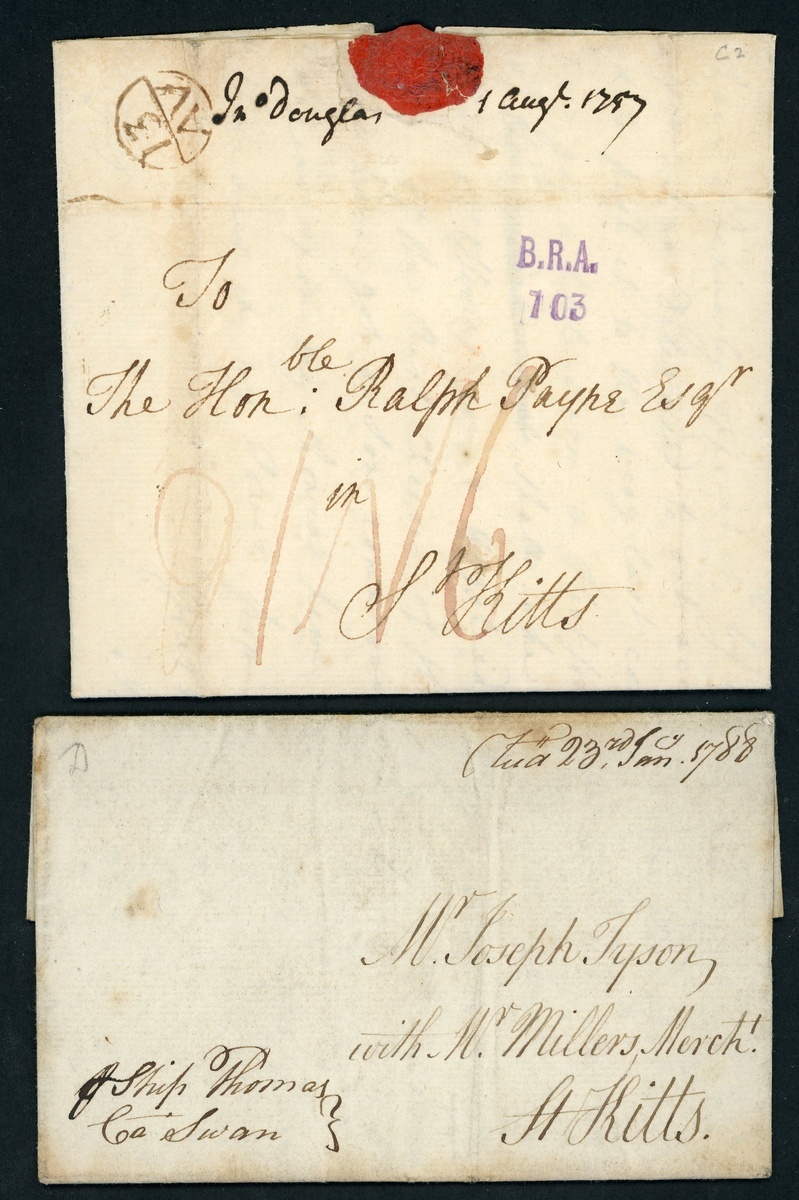 C2
13 AV
Jnº Douglas 1 Augt. 1757
B.R.A.
103
To
The Honble: Ralph Payne Esqr
in
1N6
St Kitts
D
23rd Jany. 1788
Mr. Joseph Tyson,
with Mr. Millers, Mercht.
St Kitts.
Ship Thomas
Ca Swan